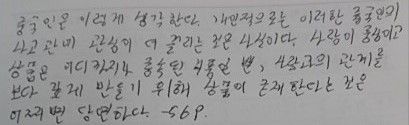 중국인은 이렇게 생각한다. 개인적으로는 이러한 중국인의
사고관에 관심이 더 끌리는 것은 사실이다. 사람이 중심이고
상품은 어디까지나 종속된 부품일 뿐, 사람과의 관계를
보다 깊게 만들기 위해 상품이 존재한다는 것은
어쩌면 당연하다. -56P.